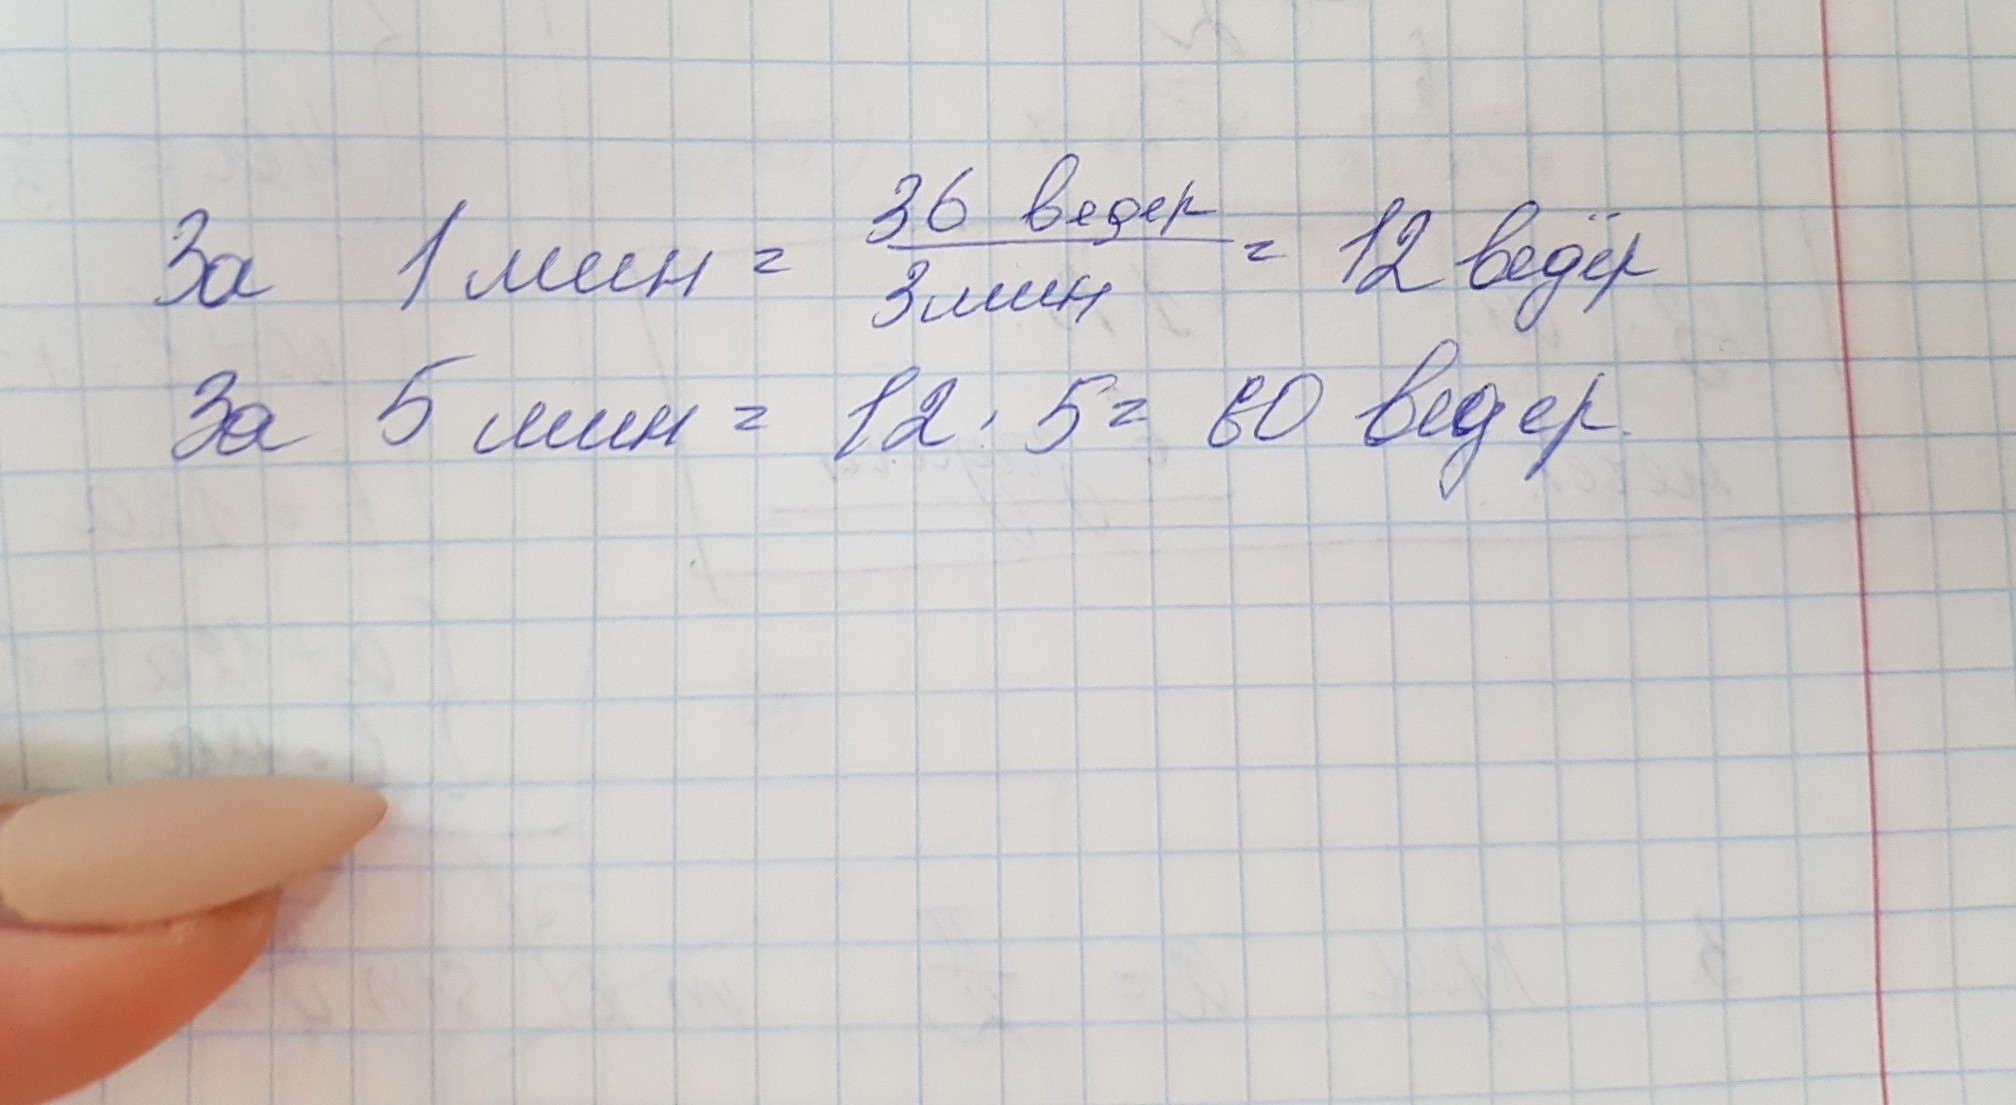 За 1 мин = 36 ведер / 3 мин = 12 ведёр
За 5 мин = 12 · 5 = 60 ведер.